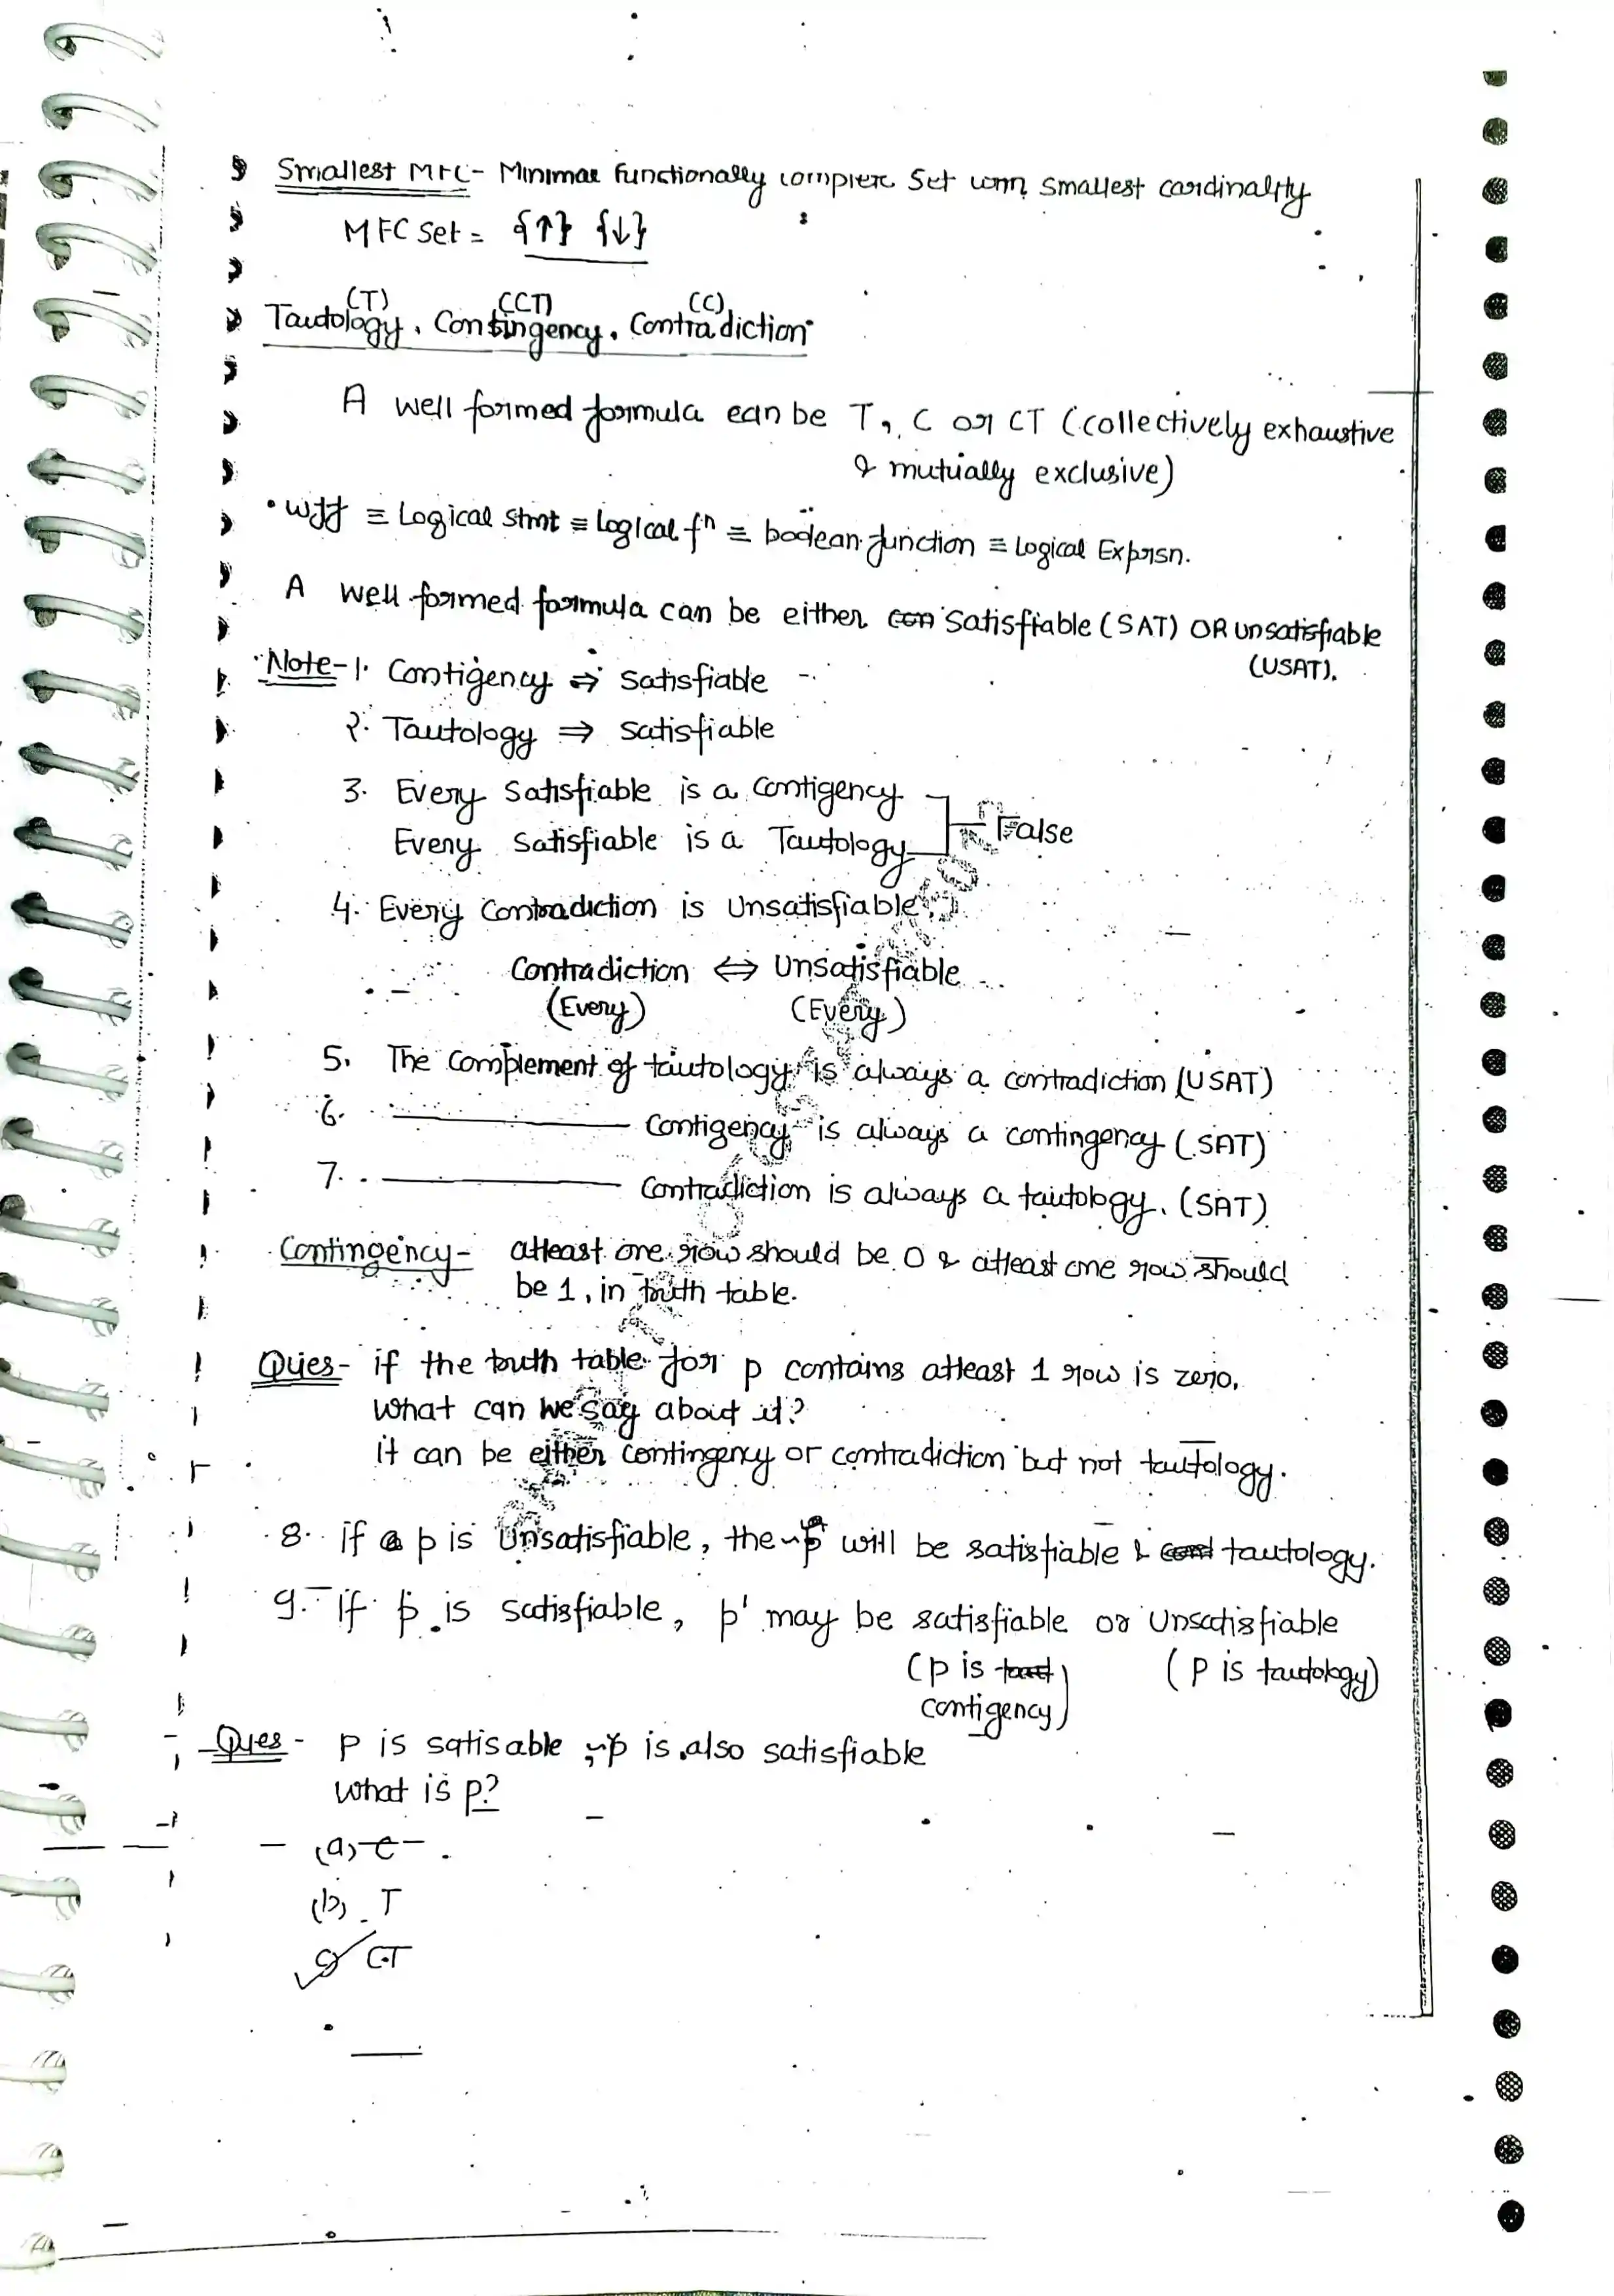 Smallest MFC - Minimal Functionally complete Set with smallest cardinality
MFC Set = {↑} {↓}
(T) (CT) (C)
Tautology, Contingency, Contradiction
A well formed formula can be T, C or CT (collectively exhaustive
& mutually exclusive)
• wff ≡ Logical stmt ≡ Logical fⁿ ≡ boolean function ≡ Logical Exprsn.
A well formed formula can be either Satisfiable (SAT) OR Unsatisfiable
(USAT).
Note - 1. Contigency ⇒ Satisfiable
2. Tautology ⇒ Satisfiable
3. Every Satisfiable is a Contigency
Every Satisfiable is a Tautology
False
4. Every Contradiction is Unsatisfiable
Contradiction ⇔ Unsatisfiable
(Every) (Every)
5. The Complement of tautology is always a contradiction (USAT)
6. ———— Contigency is always a contingency (SAT)
7. ———— Contradiction is always a tautology. (SAT)
Contingency - atleast one row should be 0 & atleast one row should
be 1, in truth table.
Ques - if the truth table for p contains atleast 1 row is zero.
What can we say about it?
it can be either contingency or contradiction but not tautology.
8. if p is Unsatisfiable, the ~p will be satisfiable & tautology.
9. If p is satisfiable, p' may be satisfiable or Unsatisfiable
(p is (P is tautology)
contigency)
Ques - P is satisable, ~p is also satisfiable
What is p?
(a) C
(b) T
(c) CT